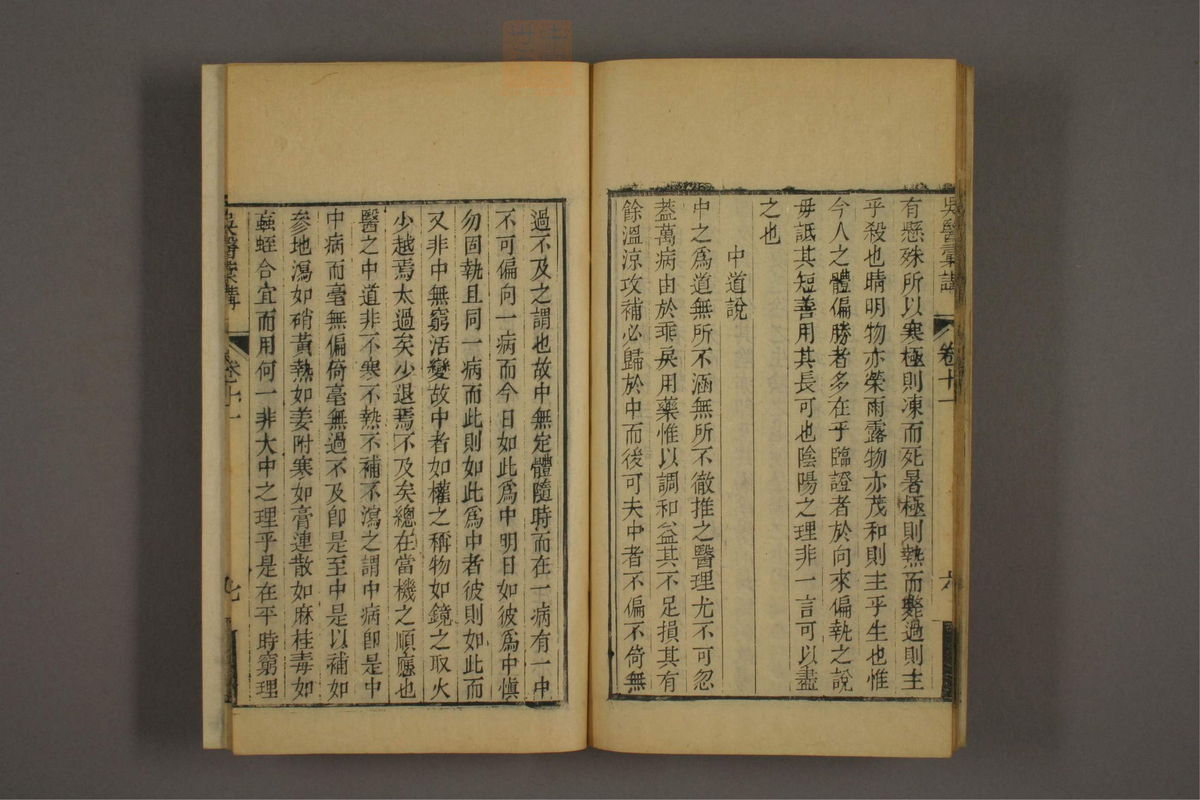 吳醫彙講
卷十一
六
有懸殊所以寒極則凍而死暑極則熱而斃過則主
乎殺也晴明物亦榮雨露物亦茂和則主乎生也惟
今人之體偏勝者多在乎臨證者於向來偏執之說
毋詆其短善用其長可也陰陽之理非一言可以盡
之也
中道說
中之爲道無所不涵無所不徹推之醫理尤不可忽
蓋萬病由於乖戾用藥惟以調和益其不足損其有
餘溫涼攻補必歸於中而後可夫中者不偏不倚無
過不及之謂也故中無定體隨時而在一病有一中
不可偏向一病而今日如此爲中明日如彼爲中愼
勿固執且同一病而此則如此爲中者彼則如此而
又非中無窮活變故中者如權之稱物如鏡之取火
少越焉太過矣少退焉不及矣總在當機之順應也
醫之中道非不寒不熱不補不瀉之謂中病卽是中
中病而毫無偏倚毫無過不及卽是至中是以補如
參地瀉如硝黃熱如姜附寒如膏連散如麻桂毒如
蝱蛭合宜而用何一非大中之理乎是在平時窮理
吳醫彙講
卷十一
七